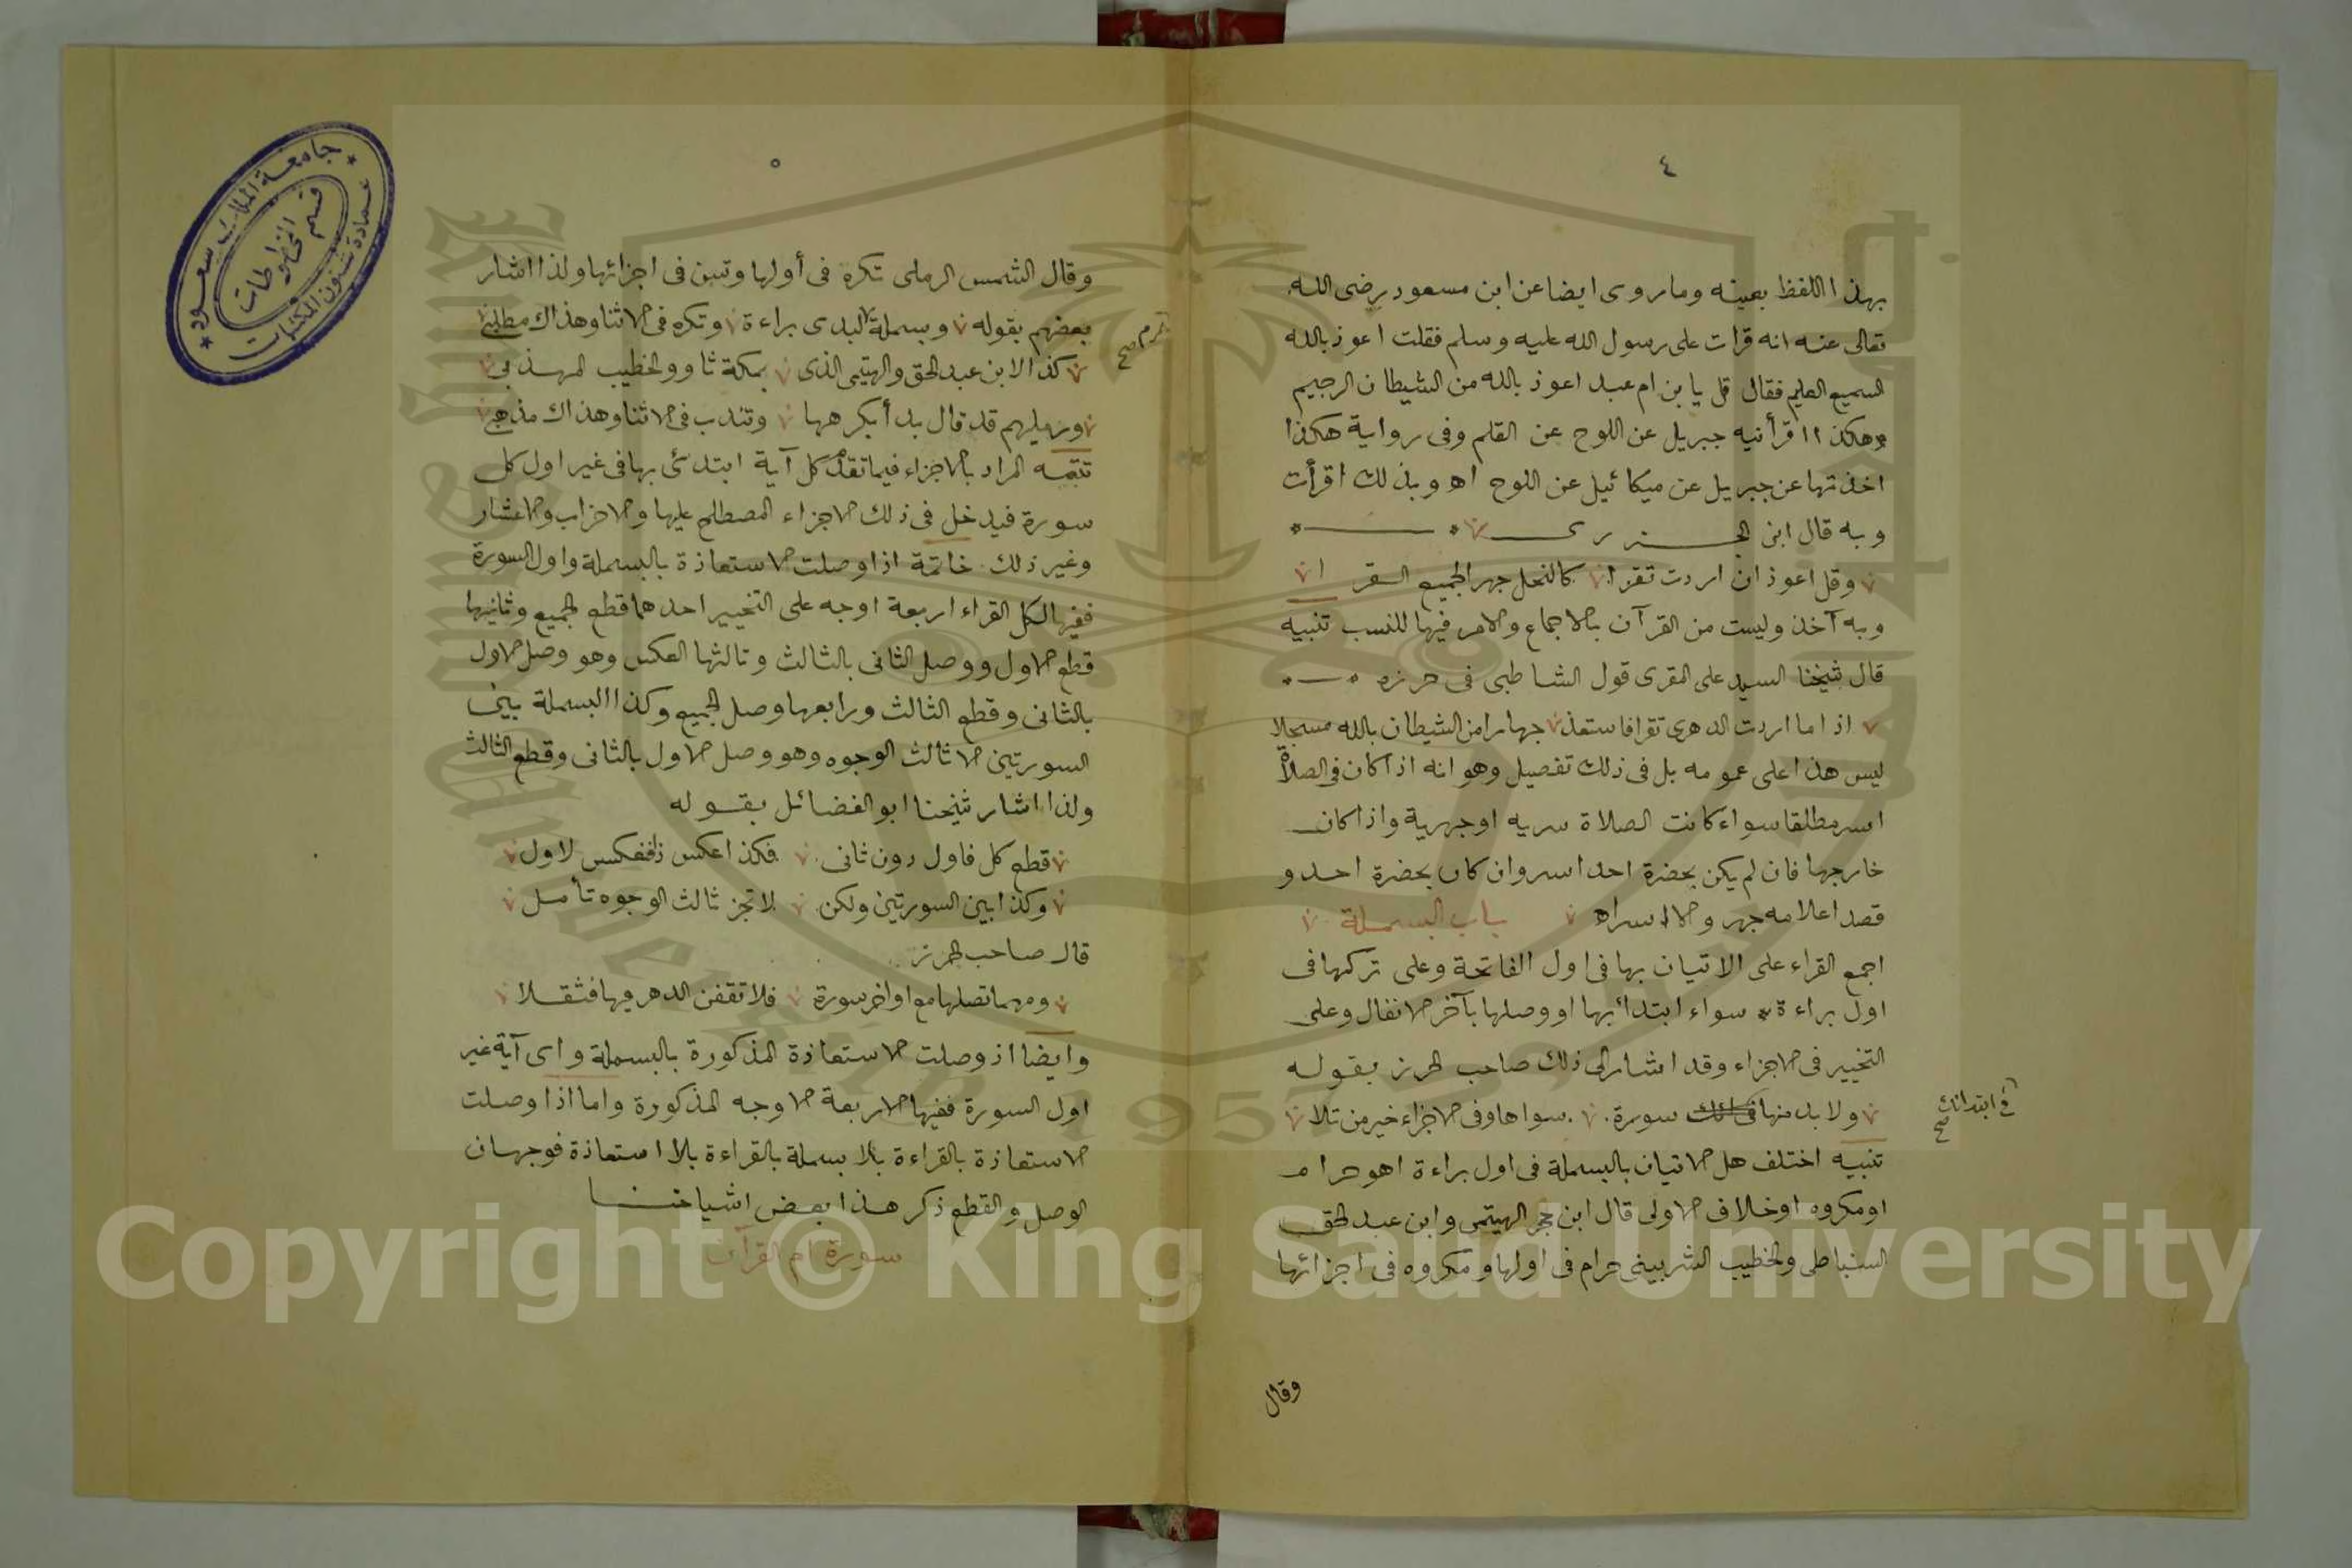 ٤
بهذا اللفظ بعينه وما روى ايضا عن ابن مسعود رضى الله
تعالى عنه انه قرات على رسول الله عليه وسلم فقلت اعوذ بالله
السميع العليم فقال قل يا بن ام عبد اعوذ بالله من الشيطان الرجيم
وهكذا اقرأنيه جبريل عن اللوح عن القلم وفى رواية هكذا
اخذتها عن جبريل عن ميكائيل عن اللوح اه وبذلك اقرأت
وبه قال ابن الجزرى
وقل اعوذ ان اردت تقرا كالنحل جهرا لجميع القرا
وبه آخذ وليست من القرآن بالاجماع والامر فيها للندب تنبيه
قال شيخنا السيد على المقرى قول الشاطبى فى حرزه
اذا ما اردت الدهرى تقرا فاستعذ جهارا من الشيطان بالله مسجلا
ليس هذا على عمومه بل فى ذلك تفصيل وهو انه اذا كان فى الصلاة
اسر مطلقا سواء كانت الصلاة سريه او جهرية واذا كان
خارجها فان لم يكن بحضرة احد اسر وان كان بحضرة احد و
قصد اعلامه جهر والا اسر اه باب البسملة
اجمع القراء على الاتيان بها فى اول الفاتحة وعلى تركها فى
اول براءة سواء ابتدأ بها او وصلها بآخر الانفال وعلى
التخيير فى الاجزاء وقد اشار الى ذلك صاحب الحرز بقوله
ولا بد منها سورة سواها وفى الاجزاء خير من تلا
فى ابتدائك صح
تنبيه اختلف هل الاتيان بالبسملة فى اول براءة اهو حرام
او مكروه او خلاف الاولى قال ابن حجر الهيتمى وابن عبد الحق
السنباطى والخطيب الشربينى حرام فى اولها ومكروه فى اجزائها
وقال
٥
وقال الشمس الرملى تكره فى أولها وتسن فى اجزائها ولذا اشار
بعضهم بقوله وبسملة البدى براءة وتكره فى الاثنا وهذاك مطلبى
صح
كذا لابن عبد الحق والهيتمى الذى بمكة ثاو والخطيب المهذب
ورميلهم قد قال بدأ بكرهها وتندب فى الاثنا وهذاك مذهبى
تتمه المراد بالاجزاء فيما تقدم كل آية ابتدئ بها فى غير اول كل
سورة فيدخل فى ذلك الاجزاء المصطلح عليها والاحزاب والاعشار
وغير ذلك خاتمة اذا وصلت الاستعاذة بالبسملة واول السورة
ففيها لكل القراء اربعة اوجه على التخيير احدهما قطع الجميع وثانيها
قطع الاول ووصل الثانى بالثالث وثالثها العكس وهو وصل الاول
بالثانى وقطع الثالث ورابعها وصل الجميع وكذا البسملة بين
السورتين الا ثالث الوجوه وهو وصل الاول بالثانى وقطع الثالث
ولذا اشار شيخنا ابو الفضائل بقوله
قطع كل فاول دون ثانى فكذا عكس ذا فعكس لاول
وكذا بين السورتين ولكن لا تجز ثالث الوجوه تأمل
قال صاحب الحرز
ومهما تصلها مع اواخر سورة فلا تقفن الدهر فيها فتثقلا
وايضا اذ وصلت الاستعاذة المذكورة بالبسملة واى آية غير
اول السورة ففيها الاربعة الاوجه المذكورة واما اذا وصلت
الاستعاذة بالقراءة بلا بسملة بالقراءة بلا استعاذة فوجهان
الوصل والقطع ذكر هذا بعض اشياخنا
سورة ام القرآن
جامعة الملك سعود
عمادة شئون المكتبات
قسم المخطوطات
1957
Copyright © King Saud University